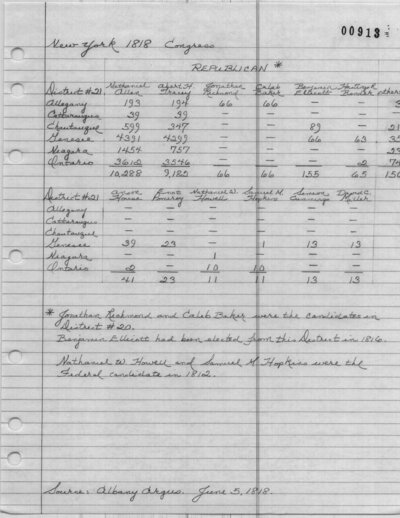 00913
New York 1818 Congress
REPUBLICAN *
District #21 Nathaniel Allen Albert H. Tracey Jonathan Richmond Caleb Baker Benjamin Ellicott others
Allegany 193 194 66 66 — —
Cattaraugus 39 39 — — — —
Chautauqua 599 347 — — 89 —
Genesee 4391 4299 — — 66 63
Niagara 1454 757 — — — —
Ontario 3612 3546 — — — 2
10,288 9,182 66 66 155 65
District #21 Nathaniel W. Howell Samuel M. Hopkins
Allegany — — — — — —
Cattaraugus — — — — — —
Chautauqua — — — — — —
Genesee 39 23 — 1 13 13
Niagara — — 1 — — —
Ontario 2 — 10 10 — —
41 23 11 11 13 13
* Jonathan Richmond and Caleb Baker were the candidates in
District #20.
Benjamin Ellicott had been elected from this District in 1816.
Nathaniel W. Howell and Samuel M. Hopkins were the
Federal candidate in
Source: Albany Argus. June 5, 1818.